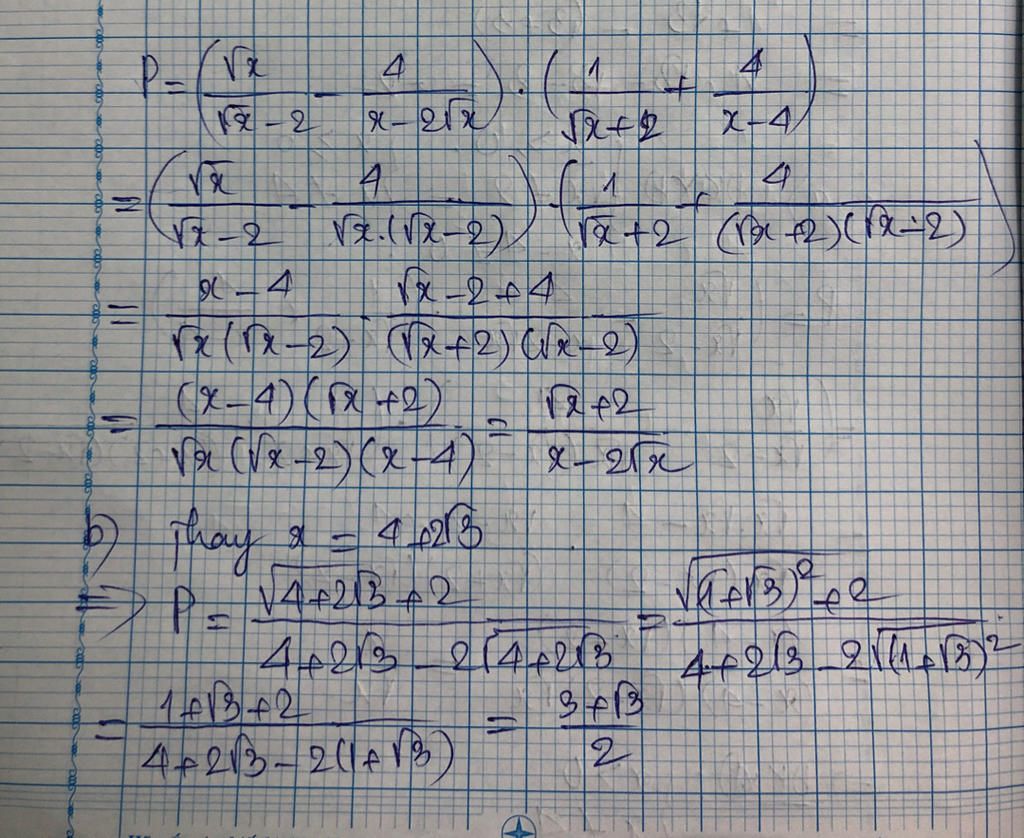 P = (√x / (√x - 2) - 4 / (x - 2√x)) . (1 / (√x + 2) + 4 / (x - 4))
= (√x / (√x - 2) - 4 / (√x.(√x - 2))) . (1 / (√x + 2) + 4 / ((√x + 2)(√x - 2)))
= (x - 4) / (√x(√x - 2)) . (√x - 2 + 4) / ((√x + 2)(√x - 2))
= ((x - 4)(√x + 2)) / (√x(√x - 2)(x - 4)) = (√x + 2) / (x - 2√x)
b) Thay x = 4 + 2√3
=> P = (√(4 + 2√3) + 2) / (4 + 2√3 - 2√(4 + 2√3)) = (√((1 + √3)²) + 2) / (4 + 2√3 - 2√((1 + √3)²))
= (1 + √3 + 2) / (4 + 2√3 - 2(1 + √3)) = (3 + √3) / 2